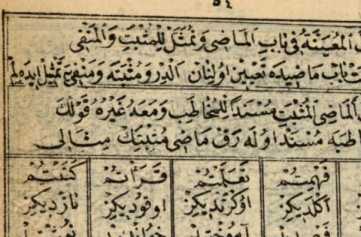 ٥٤
المعينة فى باب الماضى وتمثل للمثبت والمنفى
باب ماضيده تعيين اولنان الدر ومثبته ومنفى يه تمثيل ايده لم
الماضى المثبت مسندا للمخاطب ومعه غيره قولك
اوله رق ماضى مثبتك مثالى
فهمتم تعلمتم قرأتم كتبتم
اكلديكز اوكرنديكز اوقوديكز يازديكز